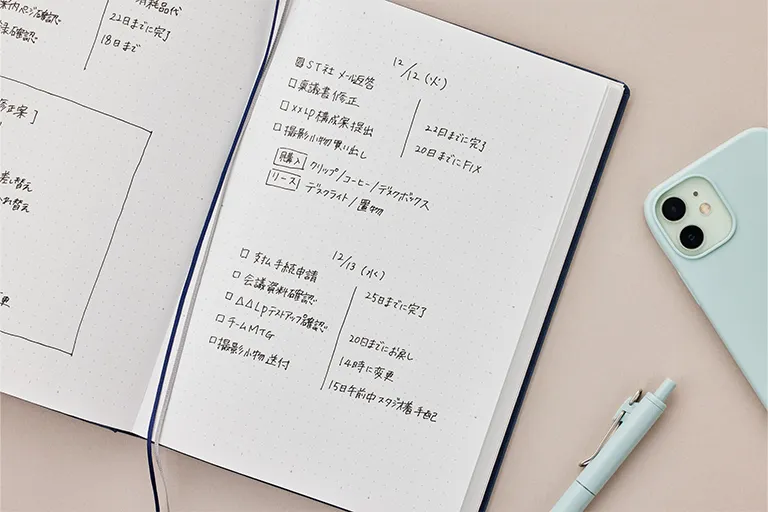 消耗品代
22日までに完了
18日まで
修正案]
差し替え
12/12(火)
ST社 メール返答
稟議書修正
××LP構成案提出
22日までに完了
撮影小物買い出し
20日までにFIX
購入 クリップ/コーヒー/デスクボックス
リース デスクライト/置物
12/13(水)
支払手続申請
25日までに完了
会議資料確認
△△LPテストアップ確認
20日までにお戻し
チームMTG
14時に変更
撮影小物送付
15日午前中スタジオ着手配